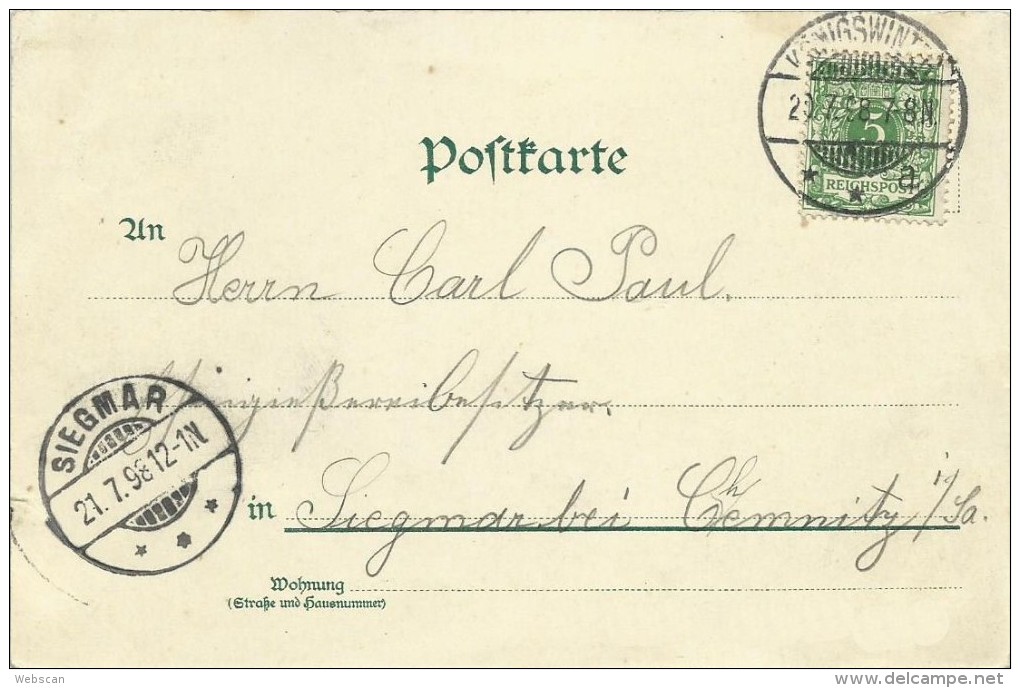 KÖNIGSWINT
20.7.98 7-8N.
a
5
REICHSPOST
Postkarte
An Herrn Carl Paul.
in Siegmar bei Chemnitz i/Sa.
SIEGMAR
21.7.98 12-1N.
Wohnung
(Straße und Hausnummer)
Webscan
delcampe.net